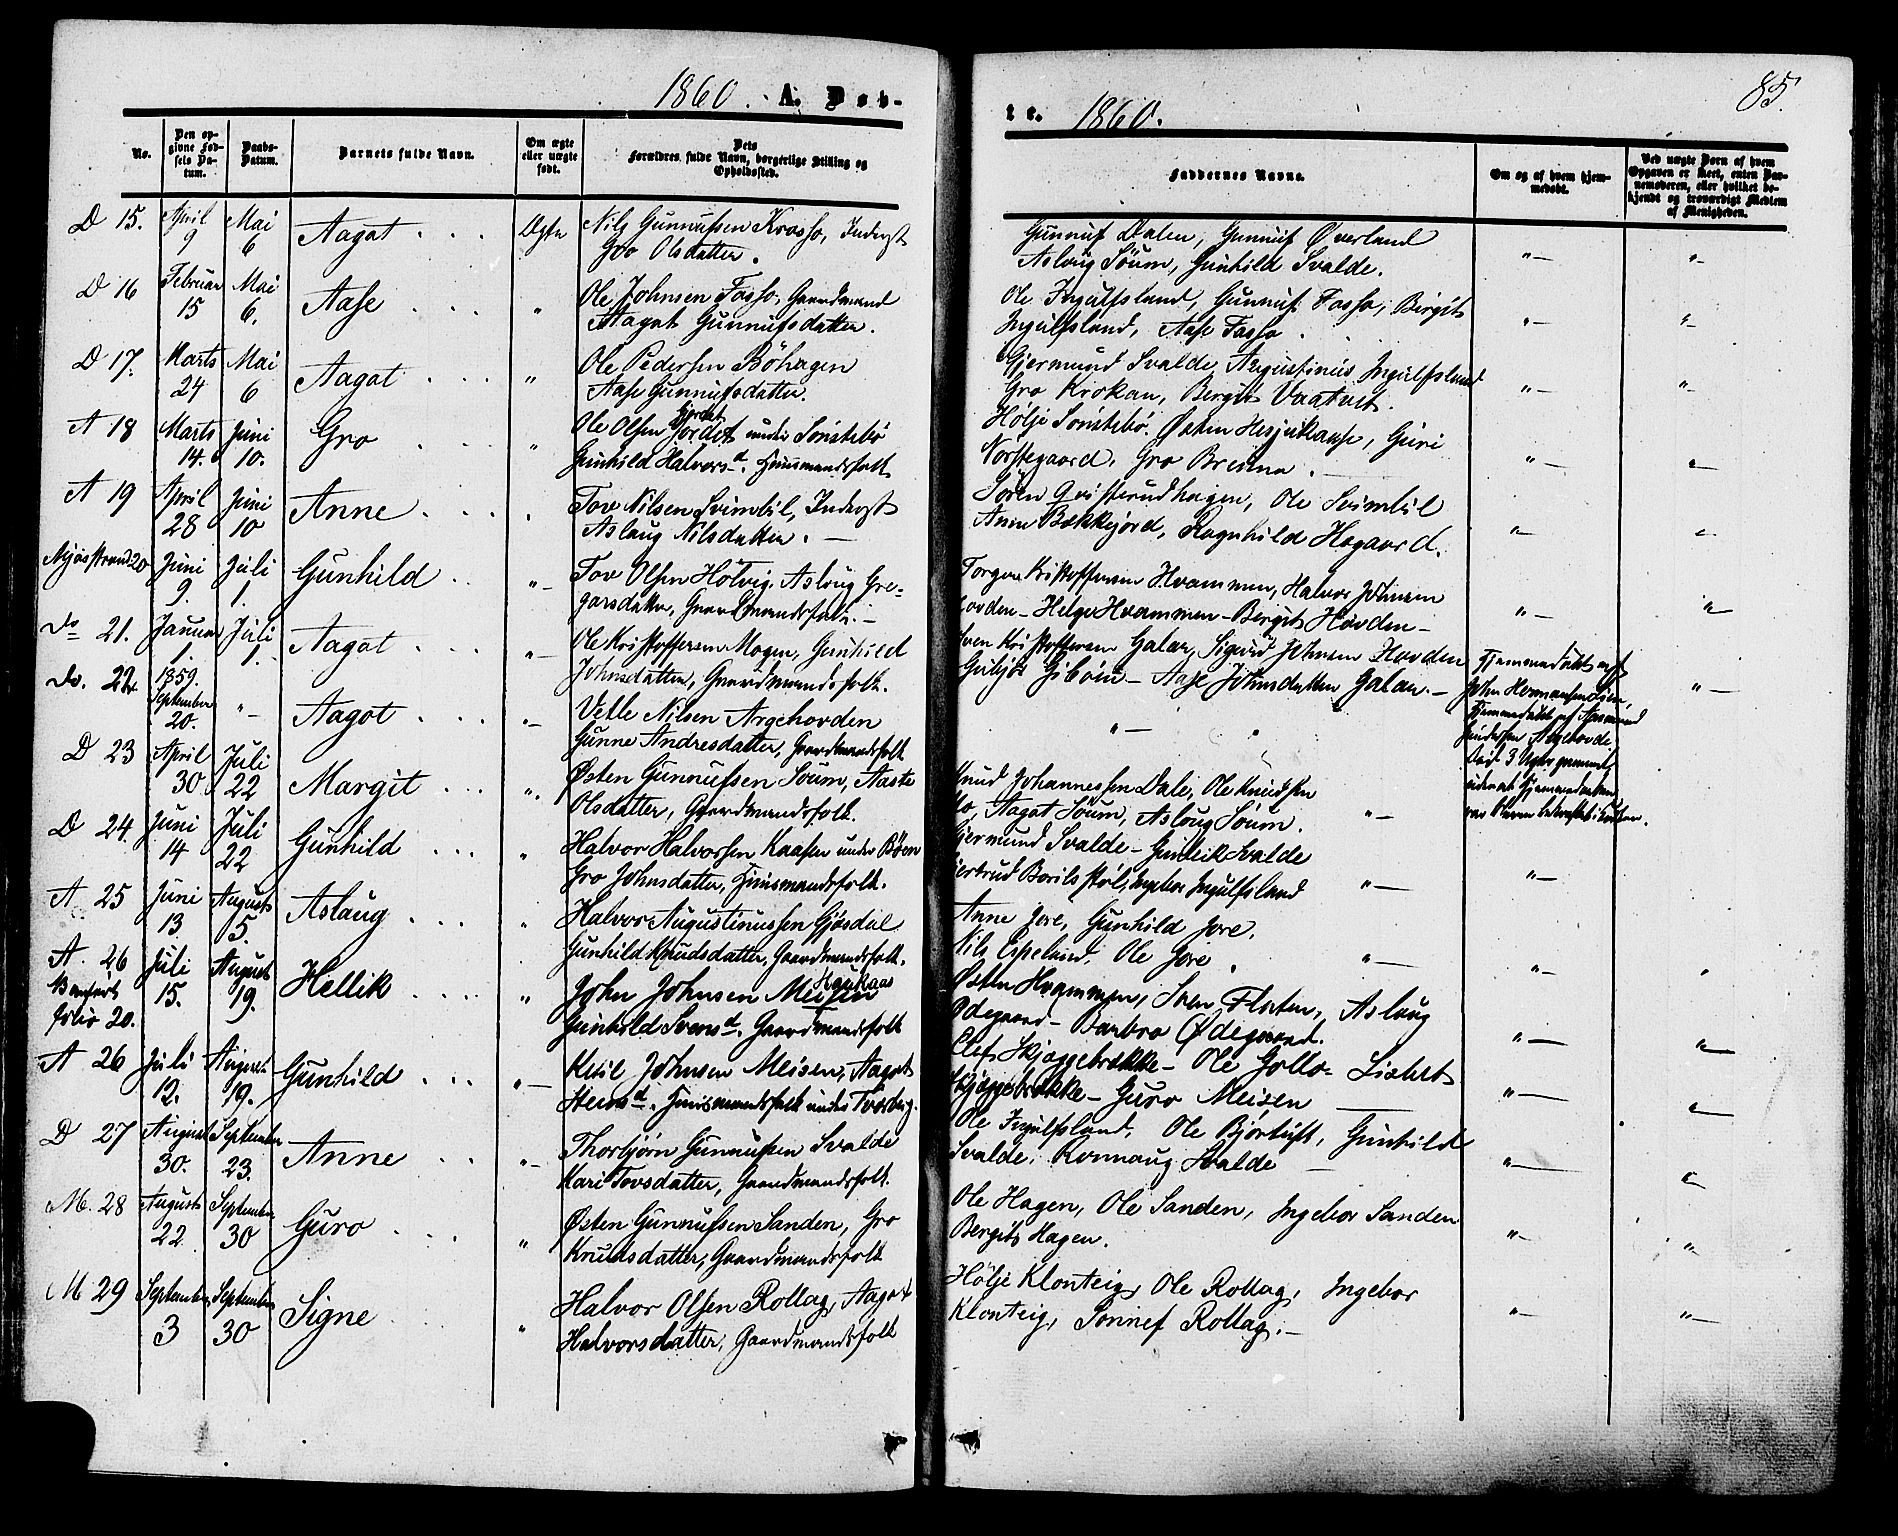 1860. A. Døb-
No.
Den op-
givne Fød-
sels Da-
tum.
Daabs-
Datum.
Barnets fulde Navn.
Om ægte
eller uægte
født.
Dets
Forældres fulde Navn, borgerlige Stilling og
Opholdssted.
D 15. April 9 Mai 6 Aagot Ægte Nils Gunnufsen Krosso, Inderst
Gro Olsdatter.
D 16 Februar 15 Mai 6. Aase " Ole Johnsen Fosso, Gaardmand
Aagot Gunnufsdatter.
D 17. Marts 24 Mai 6 Aagot " Ole Pedersen Böhagen
Aase Gunnufsdatter.
A 18 Marts 14. Juni 10. Gro " Ole Olsen Jordet under Sönstebö
Gunhild Halvorsd. Huusmandsfolk
A 19 April 28 Juni 10 Anne Tov Nilsen Svimbil, Inderst
Aslaug Nilsdatter. —
Mjøsstrand 20 Juni 9. Juli 1. Gunhild "— Tov Olsen Hölvig, Aslaug Gre-
garsdatter, Gaardmandsfolk. —
do 21. Januar 1. Juli 1. Aagot "— Ole Kristoffersen Mogen, Gunhild
Johnsdatter, Gaardmandsfolk.
do. 22 1859. September 20. "— Aagot "— Vetle Nilsen Argehovden
Gunne Andresdatter, Gaardmandsfolk
D 23 April 30 Juli 22 Margit ". Østen Gunnufsen Söum, Aaste
Olsdatter, Gaardmandsfolk.
D 24. Juni 14 Juli 22 Gunhild " Halvor Halvorsen Kaasen under Böen
Gro Johnsdatter, Huusmandsfolk.
A 25 Juni 13. August 5. Aslaug " Halvor Augustinussen Gjøsdal
Gunhild Knudsdatter, Gaardmandsfolk.
A. 26 Juli 15. August 19. Hellik " John Johnsen Meisen Haukaas
folio 20. Gunhild Svensd. Gaardmandsfolk
A 26 Juli 12. August 19. Gunhild "— Kiil Johnsen Meisen, Aagot
Huusmandsfolk under
D 27 August 30. September 23. Anne "— Thorbjørn Gunnufsen Svalde
Kari Tovsdatter, Gaardmandsfolk.
M. 28 August 22 September 30 Guro " Østen Gunnufsen Sanden, Gro
Knudsdatter, Gaardmandsfolk
M 29 September 3 September 30 Signe " Halvor Olsen Rollag, Aagot
Halvorsdatter, Gaardmandsfolk
te. 1860.
85.
Faddernes Navne.
Om og af hvem hjem-
medøbt.
Ved uægte Børn af hvem
Opgaven er skeet, enten Bar-
nemoderen, eller hvilket be-
kjendt og troværdigt Medlem
af Menigheden.
Gunnuf Dalen, Gunnuf Øverland
Aslaug Söum, Gunhild Svalde. "— "—
Ole Ingulfsland, Gunnuf Fosso, Birgit
Ingulfsland, Aase Fosso. "— "—
Gjermund Svalde, Augustinus Ingulfsland
Gro Krokan, Bergit Vaatvet. "— "—
Hölje Sönstebö. Østen Hesjukaase, Guri
Norstegaard, Gro Breiina. — "—
Sören Qvisterudhagen, Ole Svimbil
Anne Bækkejord, Ragnhild Hagaard. "—
Torger Kristoffersen Hvammen, Halvor Johnsen
Hovden — Helge Hvammen — Bergit Hovden — "— "—
Sven Kristoffersen Galar, Sigurd Johnsen Hovden
Gibøen — Aase Johnsdatter Galar. — "—
Hjemmedøbt af
John Hermansen
Hjemmedøbt af Aasmund
Argehovde
Död 3 Uger gammel
uden at Hjemmedaaben
var bleven bekræftet i Kirken.
"— "
Knud Johannessen Dale, Ole Knudsen
Aagot Söum, Aslaug Söum. "—
Gjermund Svalde — Gunleik Svalde
Gjertrud Borilstøl, Ingebor Ingulfsland "— "—
Anne Jore, Gunhild Jore.
Nils Espeland, Ole Jore. "— "—
Østen Hvammen, Sven Flaten, Aslaug
Ødegaard — Barbro Ødegaard. "— "—
Olef Skjæggebrække — Ole Gollo — Lisbet
Skjæggebrække — Guro Meisen "—
Ole Ingulfsland, Ole Bjørtuft, Gunhild
Svalde, Ronnaug Svalde — "—
Ole Hagen, Ole Sanden, Ingebor Sanden
Bergit Hagen. "— "—
Hölje Klonteig, Ole Rollag, Ingebor
Klonteig, Sonnef Rollag. — "— "—